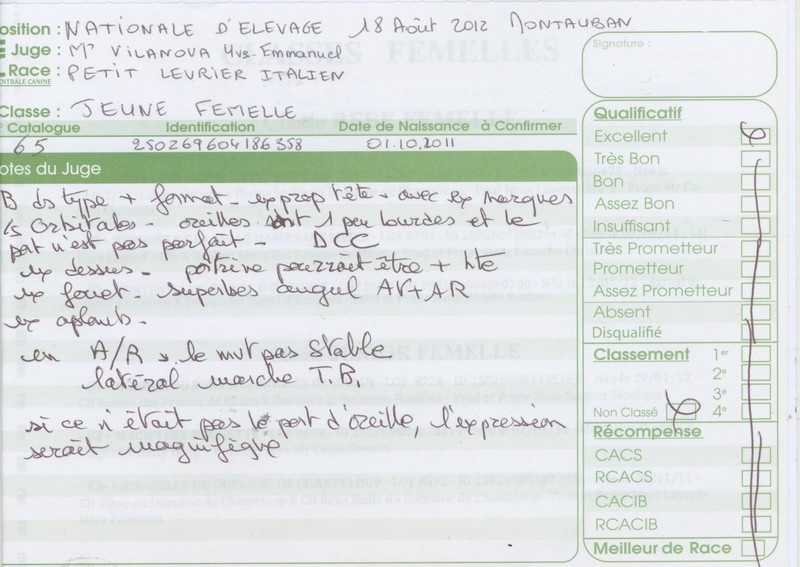 osition : NATIONALE D'ELEVAGE 18 Août 2012 MONTAUBAN
Juge : Mr VILANOVA Hve Emmanuel
Race : PETIT LEVRIER ITALIEN
CENTRALE CANINE
Classe : JEUNE FEMELLE
Catalogue Identification Date de Naissance à Confirmer
65 250269604186358 01.10.2011
otes du Juge
B ds type + format - ex prop tête - avec ex marques
/s orbitales - oreilles sont 1 peu lourdes et le
port n'est pas parfait - DCC
ex dessus - poitrine pourrait être + hte
ex fouet - superbes angul AV + AR
ex aplombs -
en A/R le mvt pas stable
latéral marche T.B.
si ce n'était pas le port d'oreille, l'expression
serait magnifique
Signature :
Qualificatif
Excellent
Très Bon
Bon
Assez Bon
Insuffisant
Très Prometteur
Prometteur
Assez Prometteur
Absent
Disqualifié
Classement 1er
2e
3e
Non Classé 4e
Récompense
CACS
RCACS
CACIB
RCACIB
Meilleur de Race